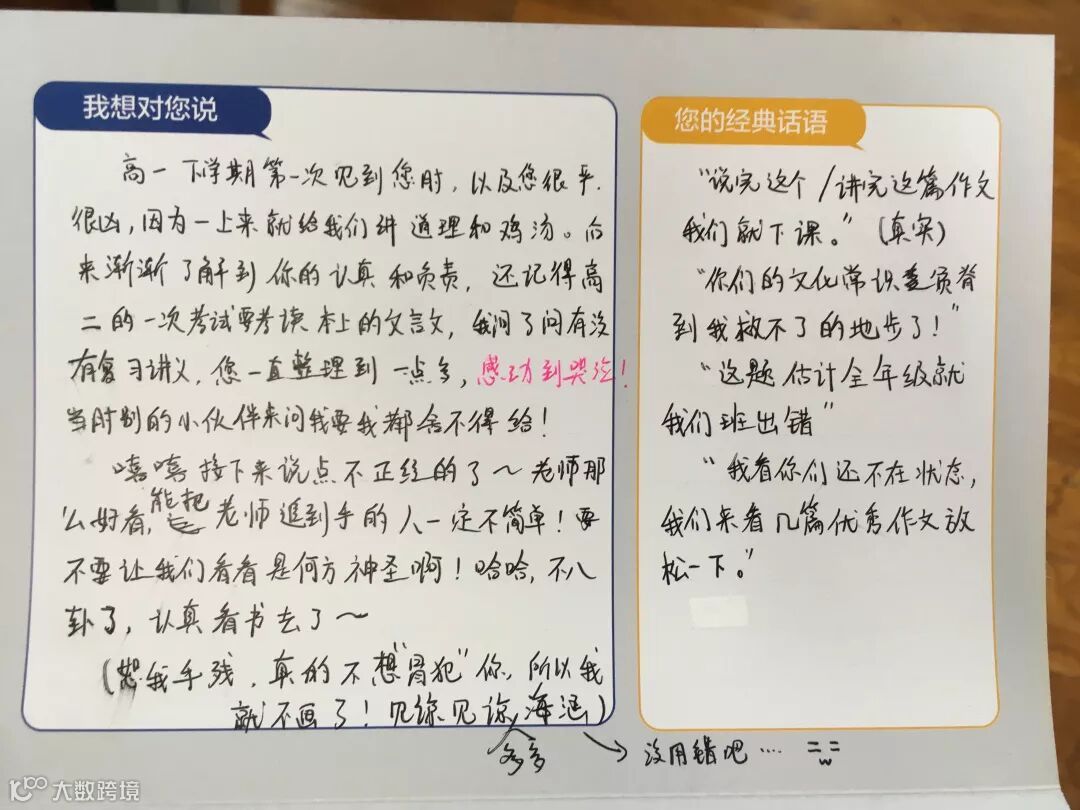 我想对您说
高一下学期第一次见到您时，以及您很严.
很凶，因为一上来就给我们讲道理和鸡汤。后
来渐渐了解到你的认真和负责，还记得高
二的一次考试要考读本上的文言文，我问了问有没
有复习讲义，您一直整理到一点多，感动到哭泣！
当时别的小伙伴来问我要我都舍不得给！
嘻嘻接下来说点不正经的了～老师那
么好看，能把老师追到手的人一定不简单！要
不要让我们看看是何方神圣啊！哈哈，不八
卦了，认真看书去了～
（恕我手残，真的不想“冒犯”你，所以我
就不画了！见谅见谅，海涵）
多多
没用错吧····
=w=
您的经典话语
“说完这个/讲完这篇作文
我们就下课。”（真实）
“你们的文化常识差负脊
到我救不了的地步了！”
“这题估计全年级就
我们班出错”
“我看你们还不在状态，
我们来看几篇优秀作文放
松一下。”
大数跨境